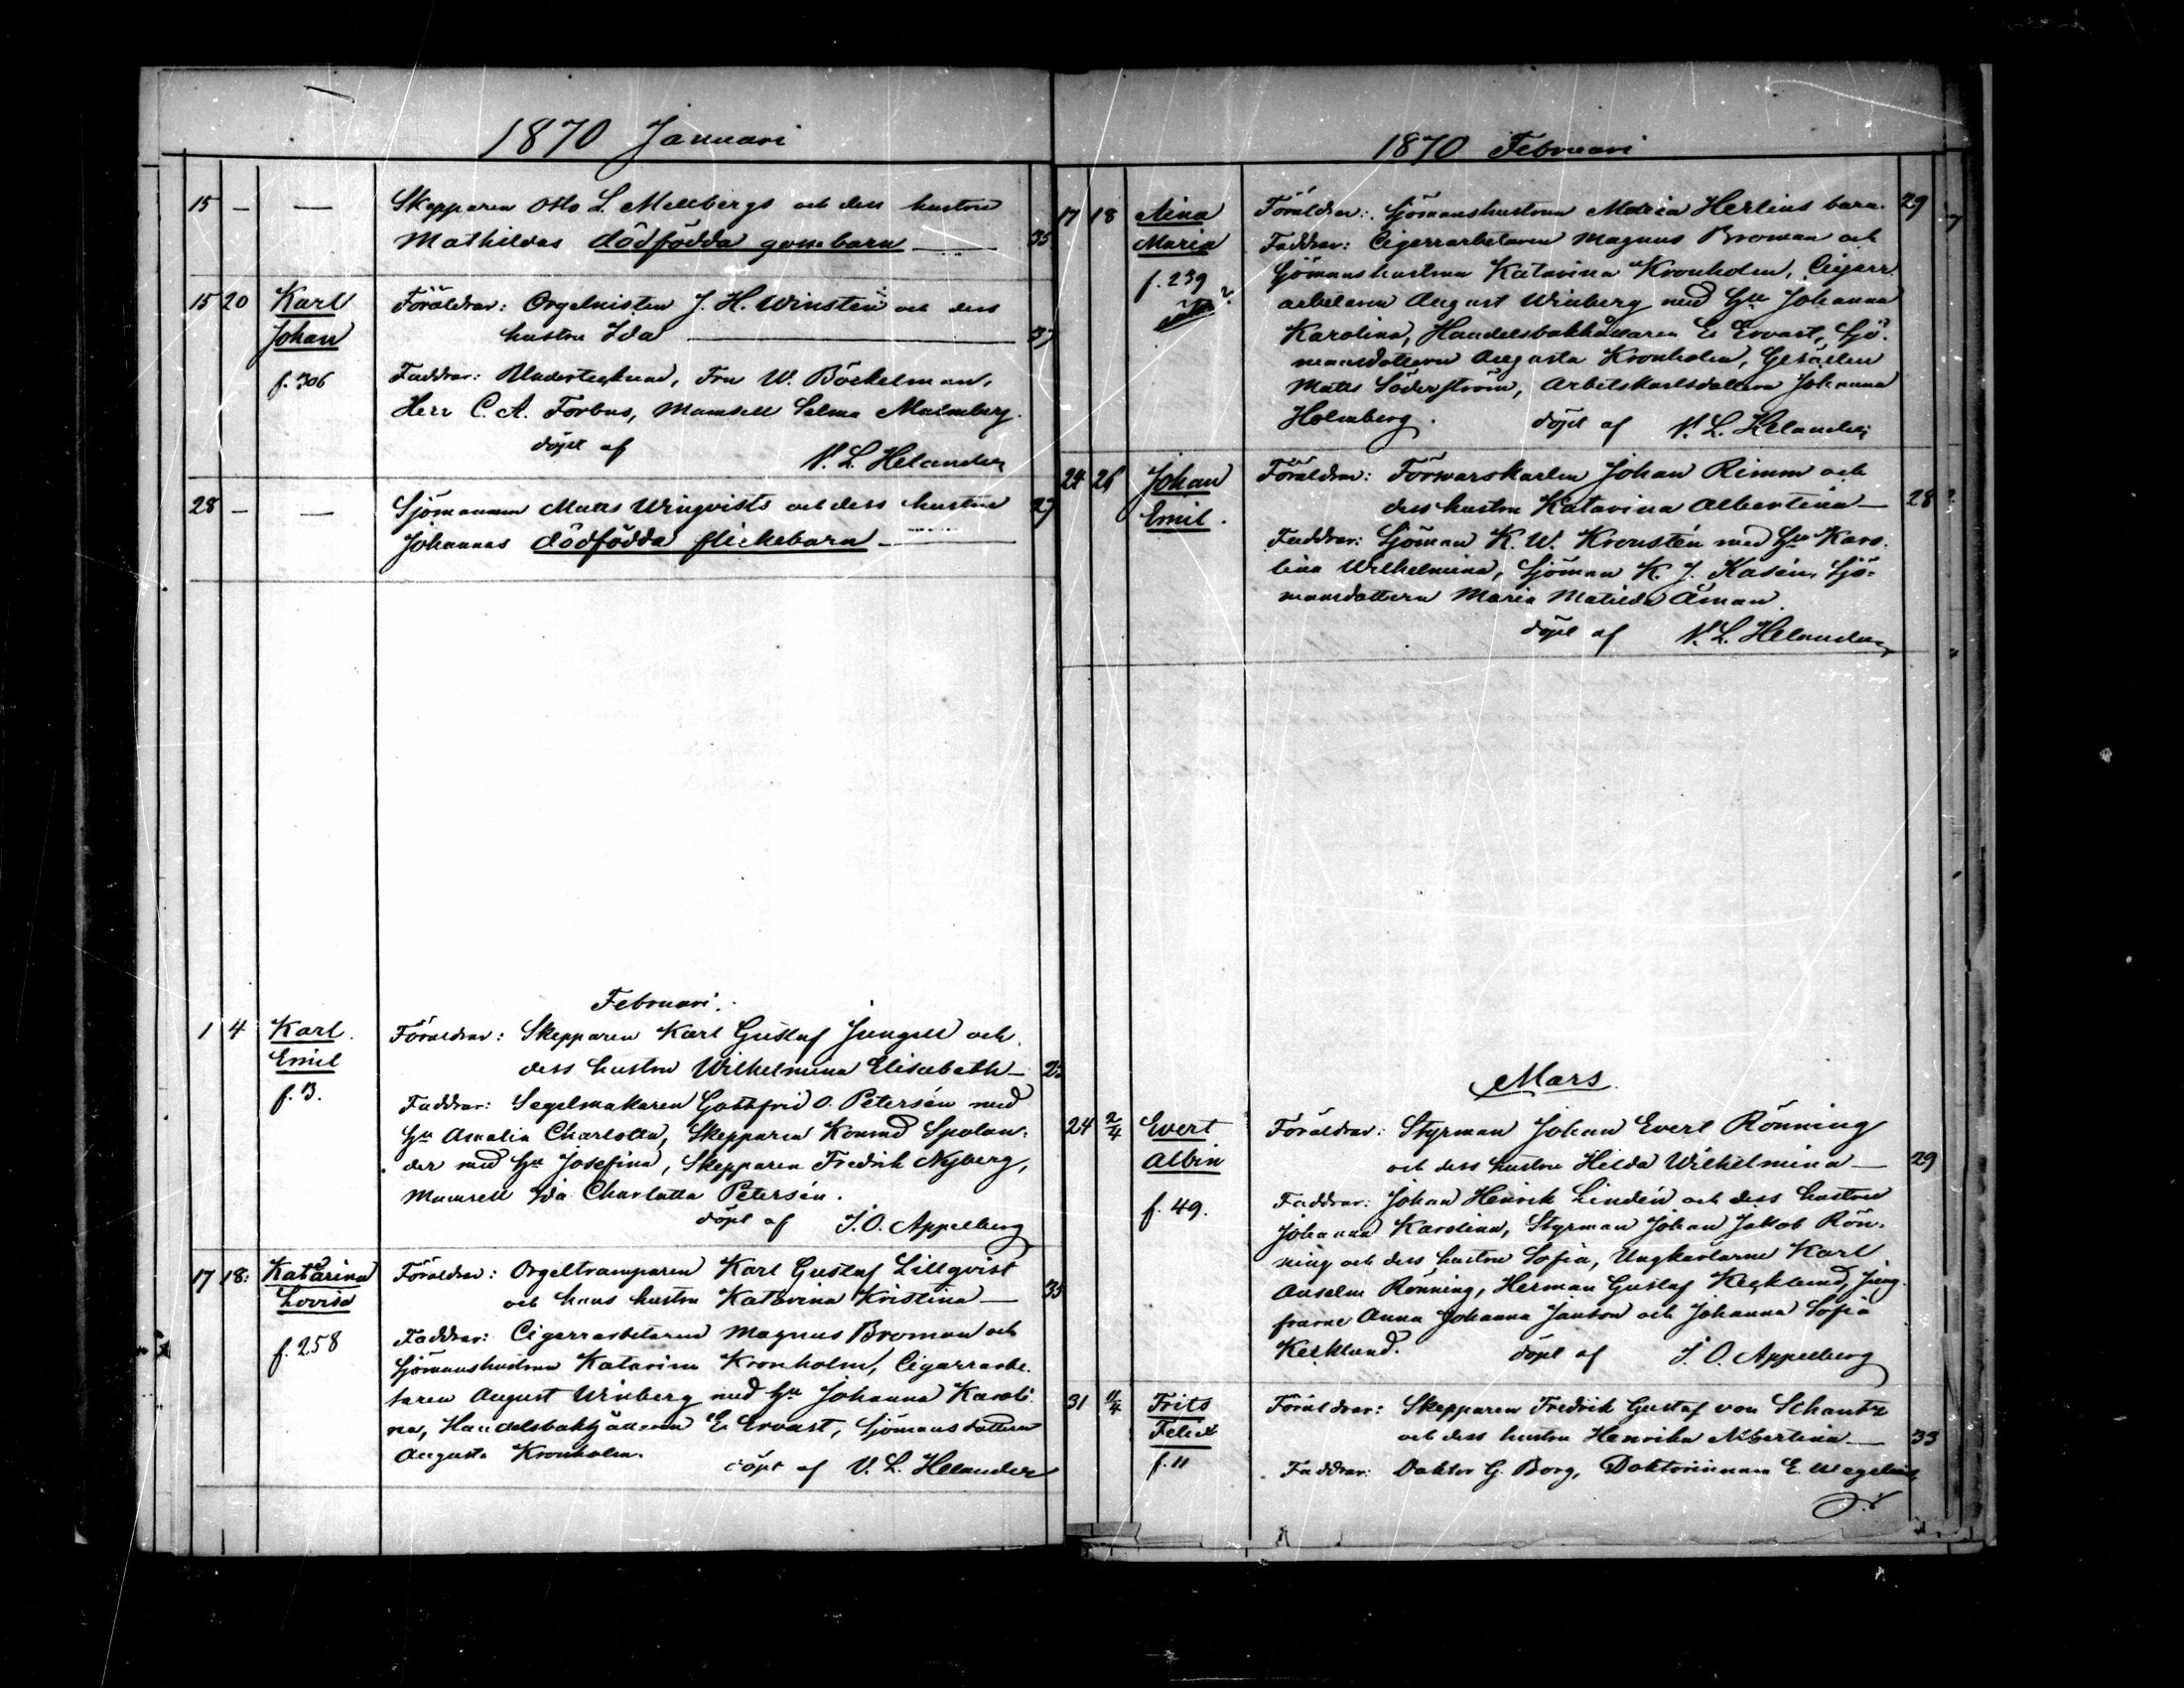 1870 Januari
15 — — Skepparen Otto L. Mellbergs och dess hustrus
Mathildas dödfödda gossebarn — 35
15 20 Karl Föräldrar: Orgelnisten J. H. Winstén och dess
Johan hustru Ida — 37
f. 306 Faddrar: Undertecknad, Fru W. Böckelman,
Herr C. A. Forbus, Mamsell Selma Malmberg.
döpt af V. L. Helander
28 — — Sjömannen Matts Winqvists och dess hustrus 27
Johannas dödfödda flickebarn —
Februari.
1 4 Karl Föräldrar: Skepparen Karl Gustaf Jungell och
Emil dess hustru Wilhelmina Elisabeth —
f. 3. Faddrar: Segelmakaren Gottfrid O. Petersén med
Hu Amalia Charlotta, Skepparen Konrad Spolan-
der med Hu Josefina, Skepparen Fredrik Nyberg,
Mamsell Ida Charlotta Petersén.
döpt af J. O. Appelberg
17 18 Katarina Föräldrar: Orgeltramparen Karl Gustaf Lillqvist
Lovisa och hans hustru Katarina Kristina — 35
f. 258 Faddrar: Cigarrarbetaren Magnus Broman och
Sjömanshustrun Katarina Kronholm, Cigarrarbe-
taren August Winberg med Hu Johanna Karoli-
na, Handelsbokhållaren E. Ervast, Sjömansdottern
Augusta Kronholm.
döpt af V. L. Helander
1870 Februari
17 18 Aina Föräldrar: Sjömanshustrun Maria Herlins barn. 29
Maria Faddrar: Cigarrarbetaren Magnus Broman och
f. 239 Sjömanshustrun Katarina Kronholm, Cigarr-
arbetaren August Winberg med Hu Johanna
Karolina, Handelsbokhållaren E. Ervast, Sjö-
mansdottern Augusta Kronholm, Gesällen
Matts Söderström, Arbetskarlsdottern Johanna
Holmberg. döpt af V. L. Helander
24 26 Johan Föräldrar: Förvarskarlen Johan Rimm och
Emil. dess hustru Katarina Albertina — 28
Faddrar: Sjöman K. W. Kronstén med Hu Karo-
lina Wilhelmina, Sjöman K. J. Kasén, Sjö-
mansdottern Maria Matilda Åman.
döpt af V. L. Helander
Mars.
24 2/4 Evert Föräldrar: Styrman Johan Evert Rönning
Albin och dess hustru Hilda Wilhelmina — 29
f. 49. Faddrar: Johan Henrik Lindén och dess hustru
Johanna Karolina, Styrman Johan Jakob Rön-
ning och dess hustru Sofia, Ungkarlarne Karl
Anselm Rönning, Herman Gustaf Kecklund, Jung-
frurne Anna Johanna Janson och Johanna Sofia
Kecklund. döpt af J. O. Appelberg
31 11/4 Frits Föräldrar: Skepparen Fredrik Gustaf von Schantz
Felix och dess hustru Henrika Albertina — 33
f. 11 Faddrar: Doktor G. Borg, Doktorinnan E. Wegelius,